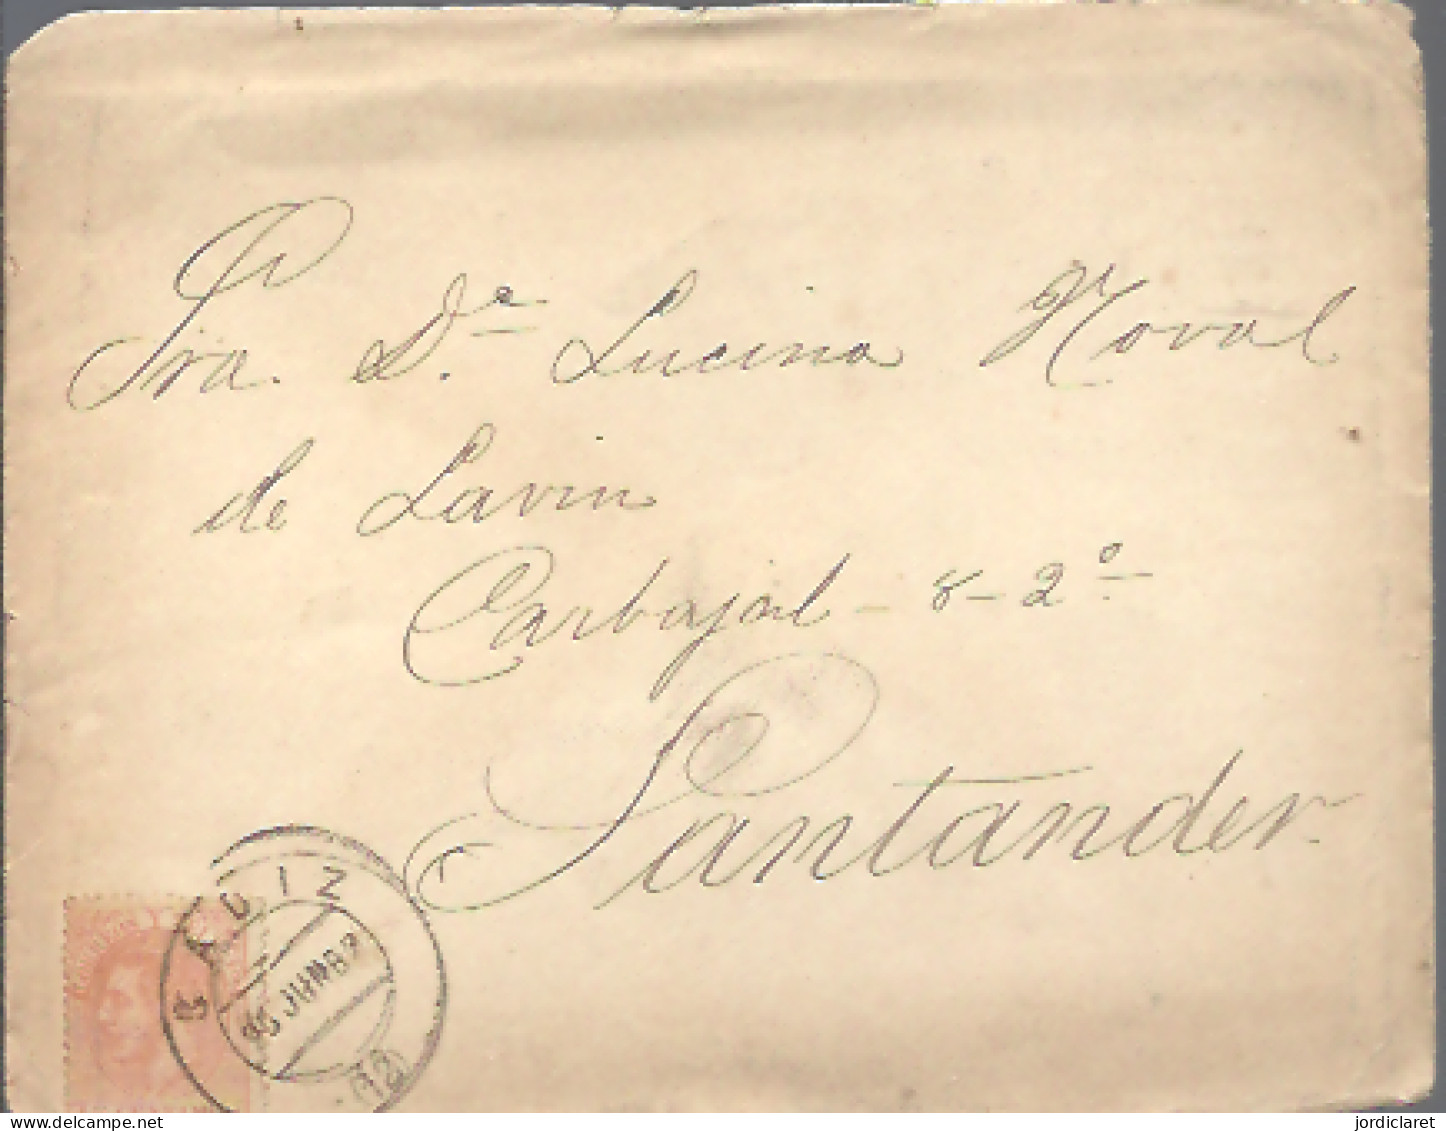 Sra. D.ª Lucina Noval
de Lavin
Carbajal - 8 - 2º
Santander
CADIZ
JUN 87
(12)
delcampe.net
jordiclaret